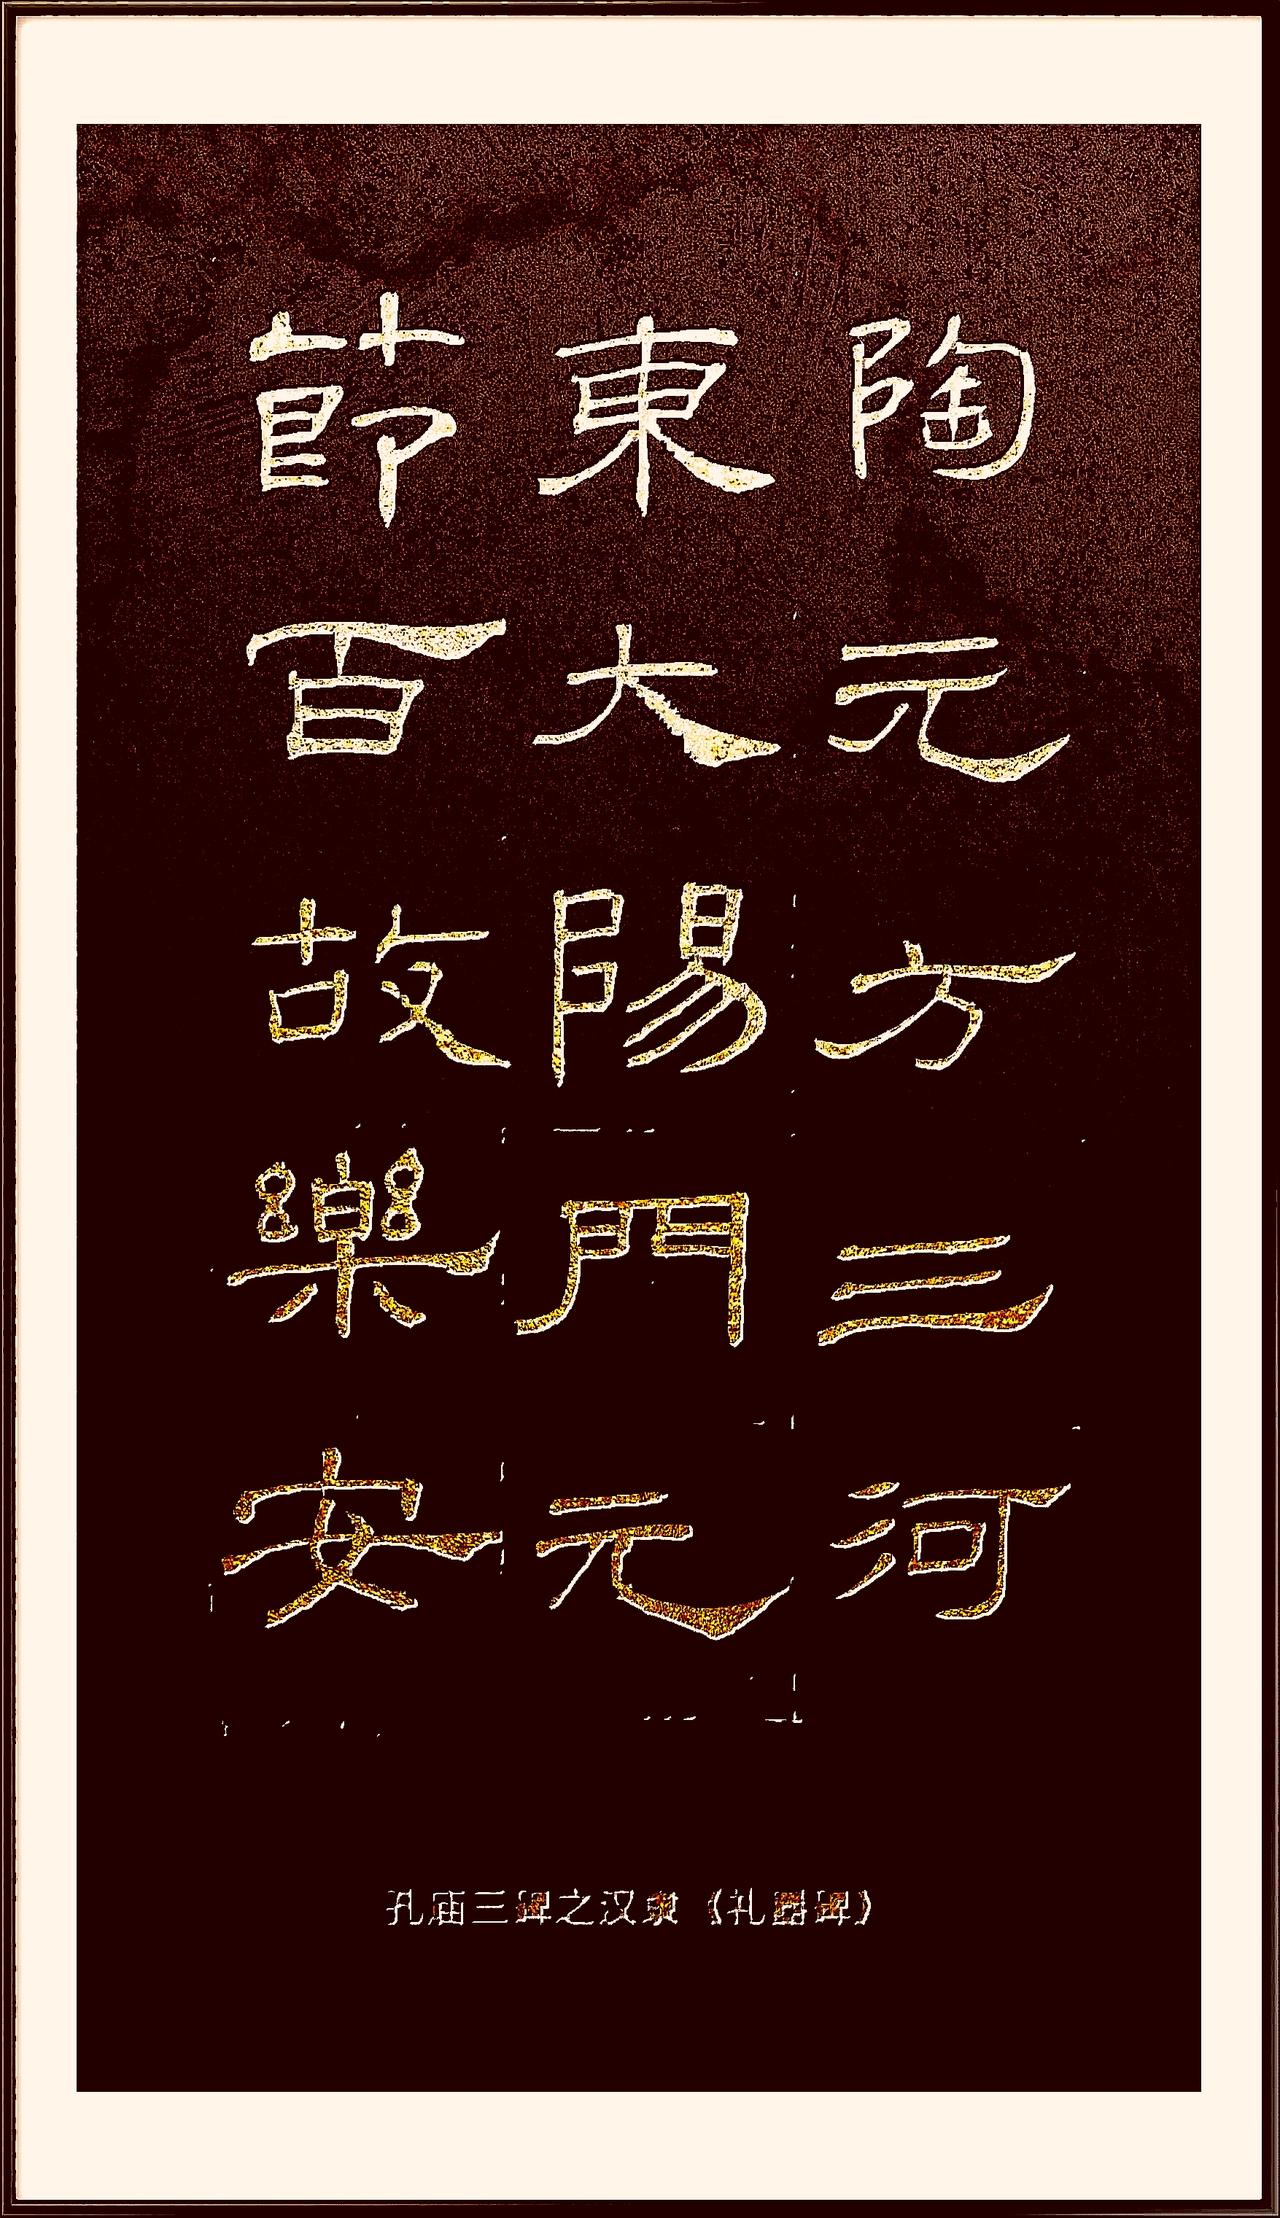 陶元方三河
東大陽門元
節百故樂安
孔庙三碑之汉隶《礼器碑》